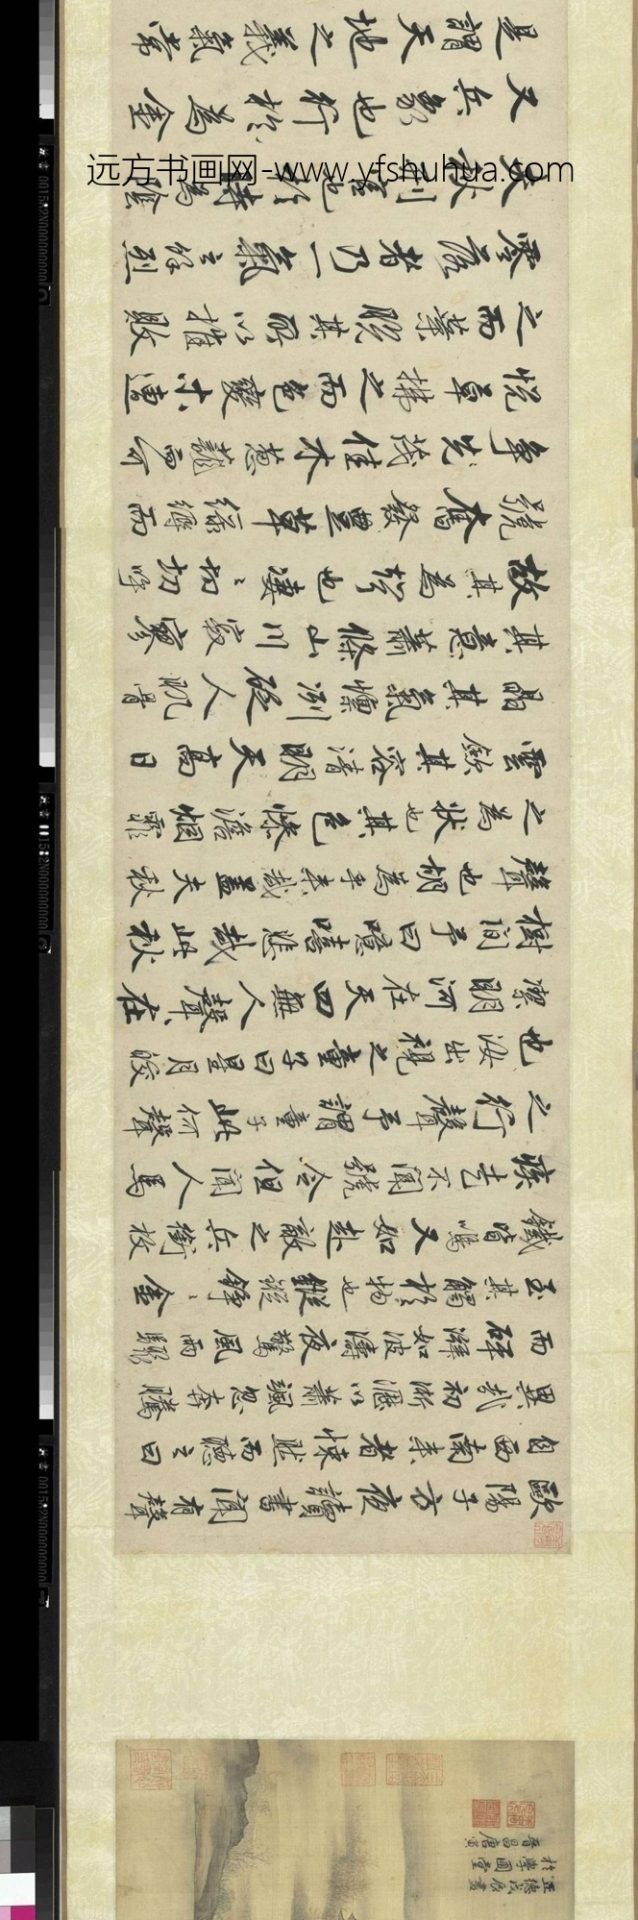 正德戊辰畫
於學圃堂
晉昌唐寅
歐陽子方夜讀書聞有聲
自西南來者悚然而聽之曰
異哉初淅瀝以蕭颯忽奔騰
而砰湃如波濤夜驚風雨驟
至其觸於物也鏦鏦錚〻金
鐵皆鳴又如赴敵之兵銜枚
疾走不聞號令但聞人馬
之行聲予謂童子此何聲
也汝出視之童子曰星月皎
潔明河在天四無人聲〻在
樹间予曰噫嘻悲哉此秋
聲也胡為乎來哉蓋夫秋
之為狀也其色慘澹烟霏
雲斂其容清明天高日
晶其氣慄冽砭人肌骨
其意蕭條山川寂寥
故其為聲也淒〻切切呼
號奮發豐草綠縟而
争先茂佳木葱蘢而可
悅草拂之而色變木遭
之而葉脫其所以摧敗
零落者乃一氣之餘烈
夫秋刑官也於時為陰
又兵象也行於為金
是謂天地之義氣常
远方书画网-www.yfshuhua.com